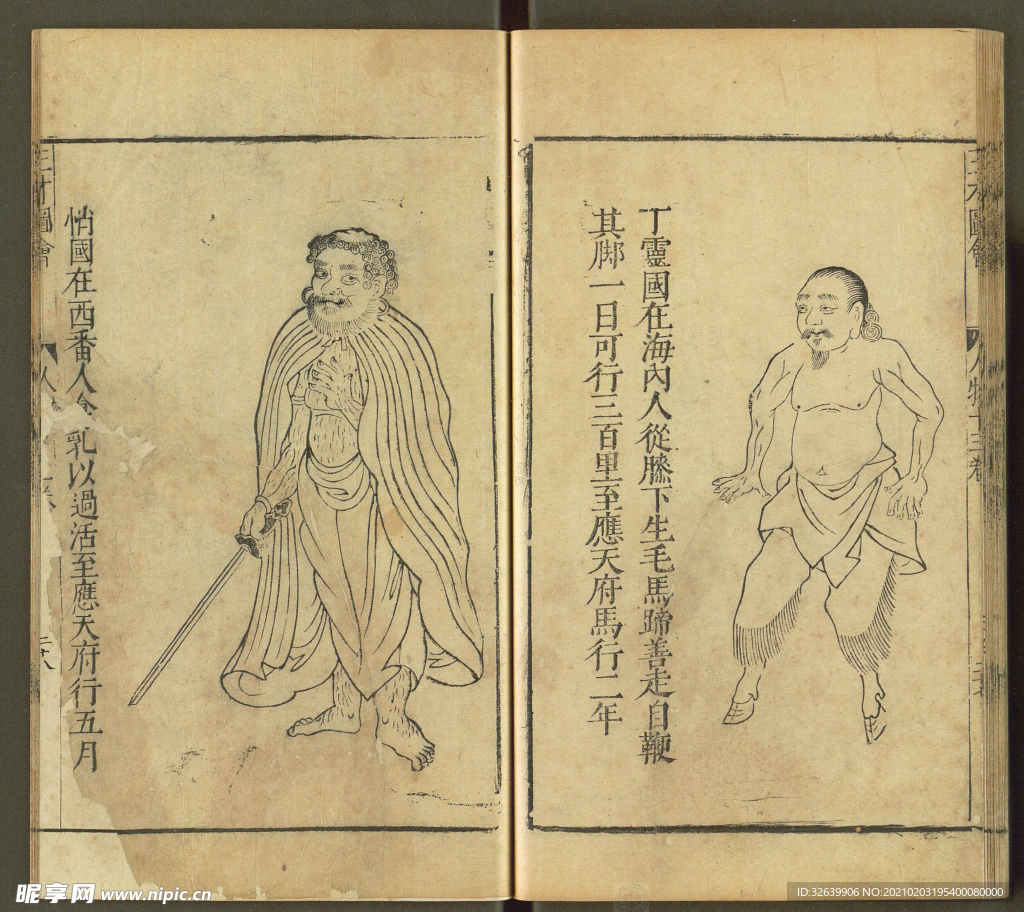 三才圖會
人物十三卷
丁靈國在海內人從膝下生毛馬蹄善走自鞭
其脚一日可行三百里至應天府馬行二年
悄國在西番人食乳以過活至應天府行五月
三才圖會
昵享网 www.nipic.cn
ID:32639906 NO:20210203195400080000